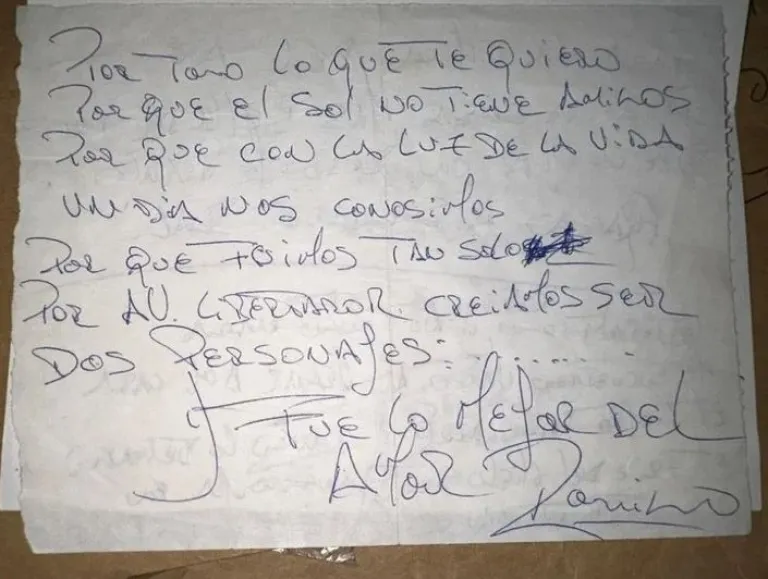 Por Todo lo que te quiero
Por que el sol no tiene
Por que con la luz de la vida
un dia nos conosimos
Por que fuimos tan solo
Por Av. Libertador. creiamos ser
dos personajes: . . . . . . .
fue lo mejor del
amor